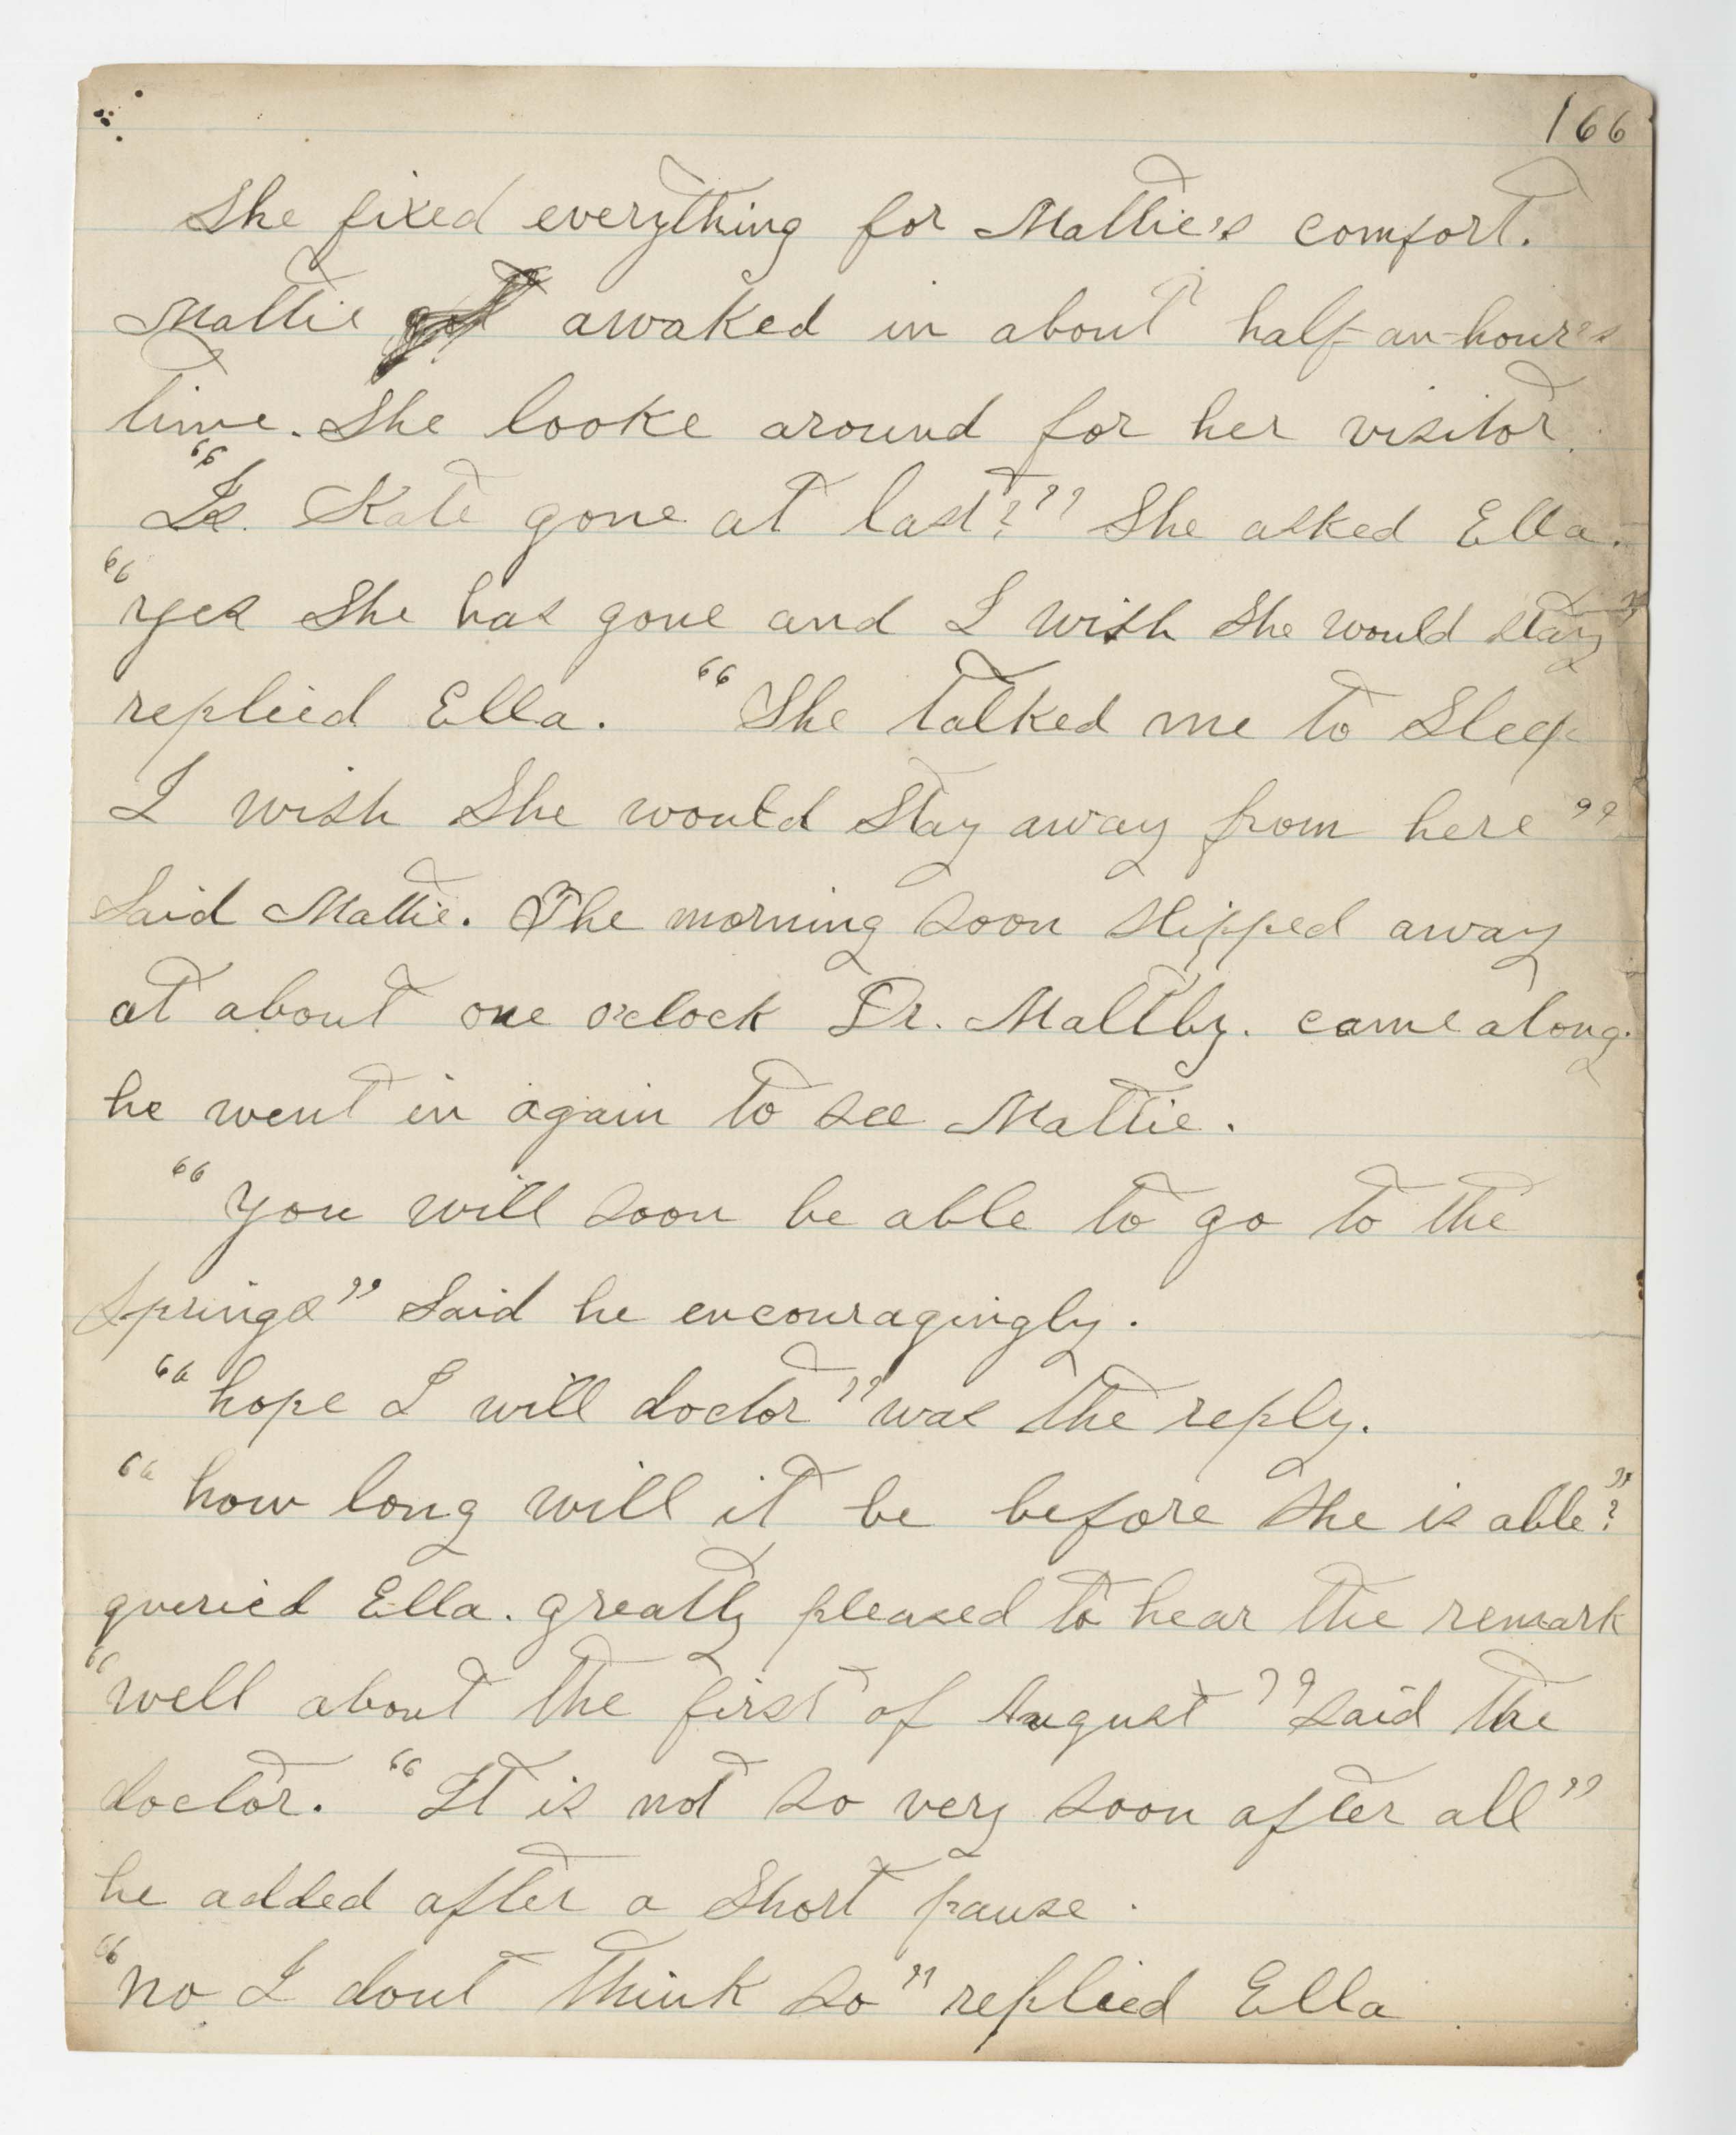 166
She fixed everything for Mattie's comfort.
Mattie awaked in about half-an-hour's
time. She looke around for her visitor.
"Is Kate gone at last?" She asked Ella.
"yes She has gone and I wish She would stay"
replied Ella. "She talked me to Sleep
I wish She would Stay away from here"
Said Mattie. The morning soon slipped away
at about one o'clock Dr. Maltby. came along.
he went in again to see Mattie.
"you will soon be able to go to the
Springs" Said he encouragingly.
"hope I will doctor" was the reply.
"how long will it be before She is able?"
queried Ella. greatly pleased to hear the remark
"well about the first of August" said the
doctor. "It is not so very soon after all"
he added after a Short pause.
"no I dont think so" replied Ella.